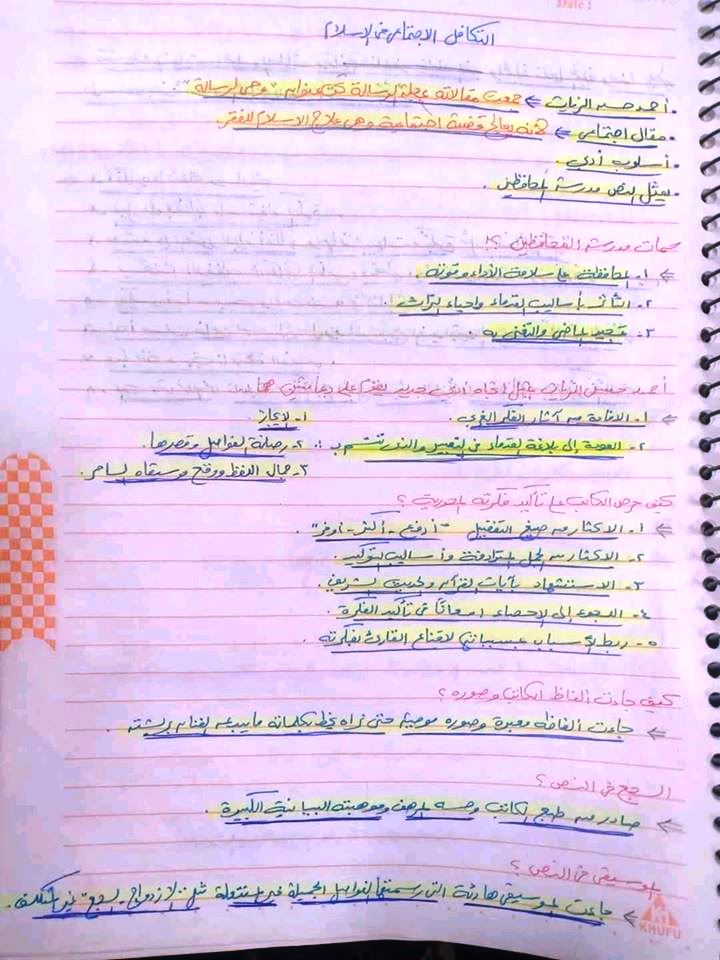 Date:
التكافل الاجتماعى فى الاسلام
• أحمد حسن الزيات ← جمعت مقالاته بمجلة الرسالة تحت عنوان "وحى الرسالة".
• مقال اجتماعى ← لأنه يعالج قضية اجتماعية وهى علاج الاسلام للفقر.
• أسلوب أدبى.
• يمثل النص مدرسة المحافظين.
سمات مدرسة المحافظين ؟!
١- المحافظة على سلامة الأداء وقوته
٢- التأثر بأساليب القدماء واحياء التراث.
٣- تمجيد الماضى والتغنى به.
أحمد حسن الزيات يمثل اتجاه أدبى جديد يقوم على دعامتين هما
١- الافادة من آثار الفكر الغربى. ١- الايجاز
٢- العودة إلى بلاغة القدماء فى التعبير والذى تتسم بـ :: ٢- رصانة الفواصل وقصرها.
٣- جمال اللفظ ووقع موسيقاه الساحر.
كيف حرص الكاتب على تأكيد فكرته المحورية ؟
١- الاكثار من صيغ التفضيل "أرفع - أكثر - أوفر".
٢- الاكثار من الجمل المترادفة وأساليب التوكيد.
٣- الاستشهاد بآيات القرآن والحديث الشريف.
٤- اللجوء إلى الاحصاء امعانًا فى تأكيد الفكرة.
٥- ربط الأسباب بمسبباتها لاقناع القارئ بفكرته.
كيف جاءت ألفاظ الكاتب وصوره ؟
جاءت ألفاظه معبرة وصوره موحية حتى نراه يخط بكلماته ما يبدعه الفنان بريشته.
السجع فى النص ؟
صادر من طبع الكاتب وحسه المرهف وموهبته البيانية الكبيرة.
الموسيقى فى النص ؟
جاءت الموسيقى هادئة التى رسمتها الفواصل الجميلة غير المفتعلة مثل: "الازدواج - السجع" غير المتكلف.
KHUFU